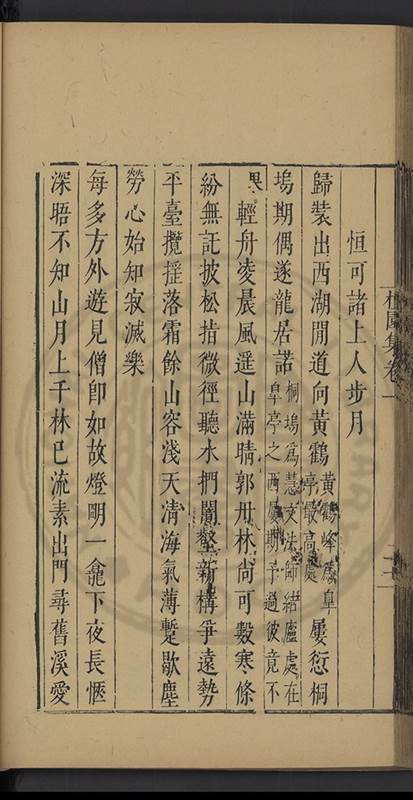 恒可諸上人步月
歸裝出西湖閒道向黃鶴黃鶴峰為皐亭最高處屢愆桐
塢期偶遂龍居諾桐塢為慧文法師結廬處在皐亭之西屢期予過彼竟不
果輕舟凌晨風遥山滿晴郭丹林尚可數寒條
紛無託披松指微徑聽水捫闇壑新構爭遠勢
平臺攬揺落霜餘山容淺天清海氣薄蹔歇塵
勞心始知寂滅樂
每多方外遊見僧卽如故燈明一龕下夜長愜
深晤不知山月上千林巳流素出門尋舊溪愛